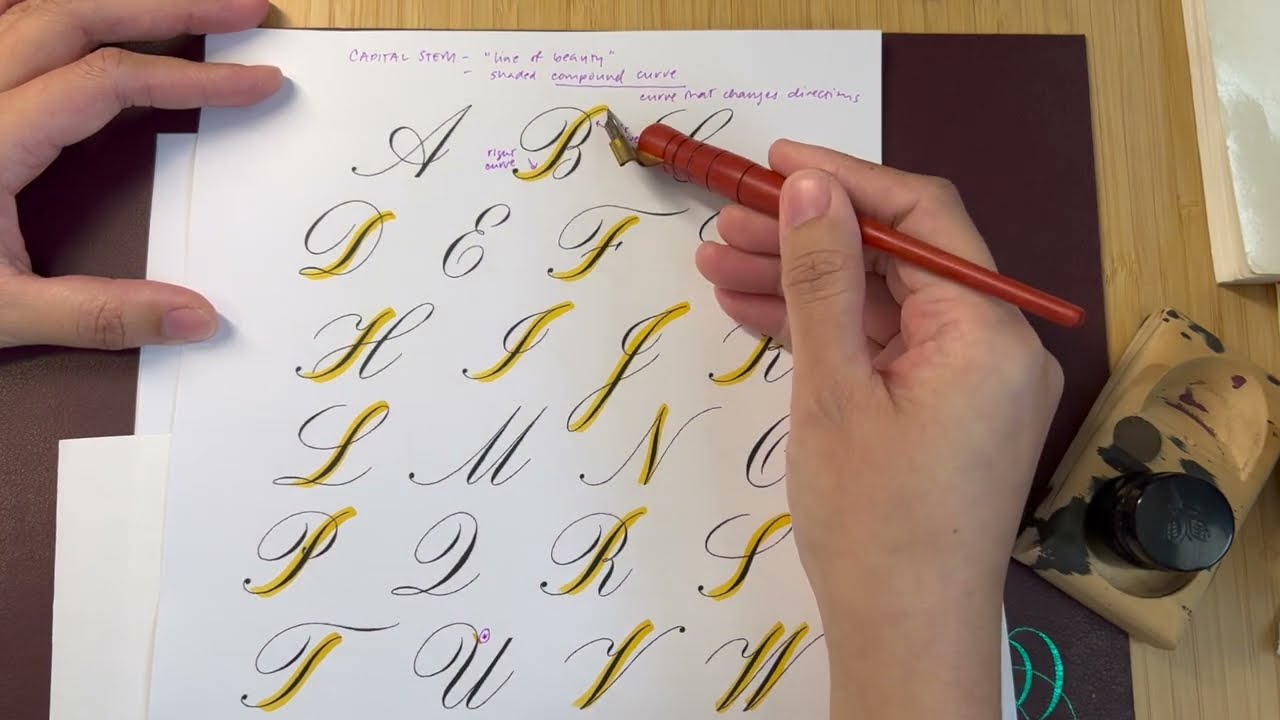 CAPITAL STEM - "line of beauty"
- shaded compound curve
curve that changes directions
A B
right curve
D E F
H I J K
L M N O
P Q R S
T U V W